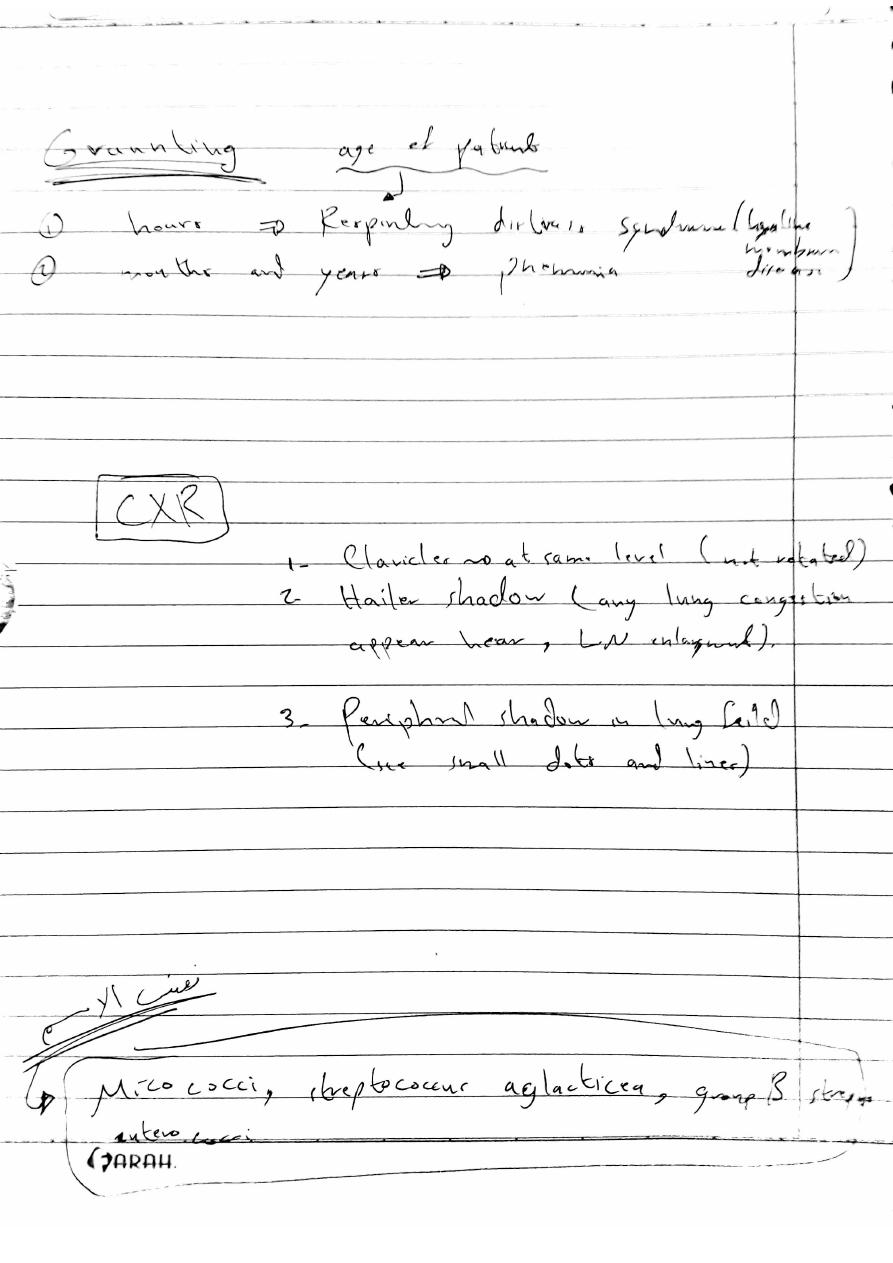 Grannting age of patients
① hours ⇒ Respiratory distress syndrome (hyaline
membrane
② months and years ⇒ pneumonia disease)
CXR
1- Clavicles at same level (not rotated)
2- Hailer shadow (any lung congestion
appear hear, LN enlargment).
3- Peripheral shadow in lung feild
(see small dots and lines)
نفس الاسم
Micococci, streptococcus aglacticea, group B strep
enterococci
GARAH.